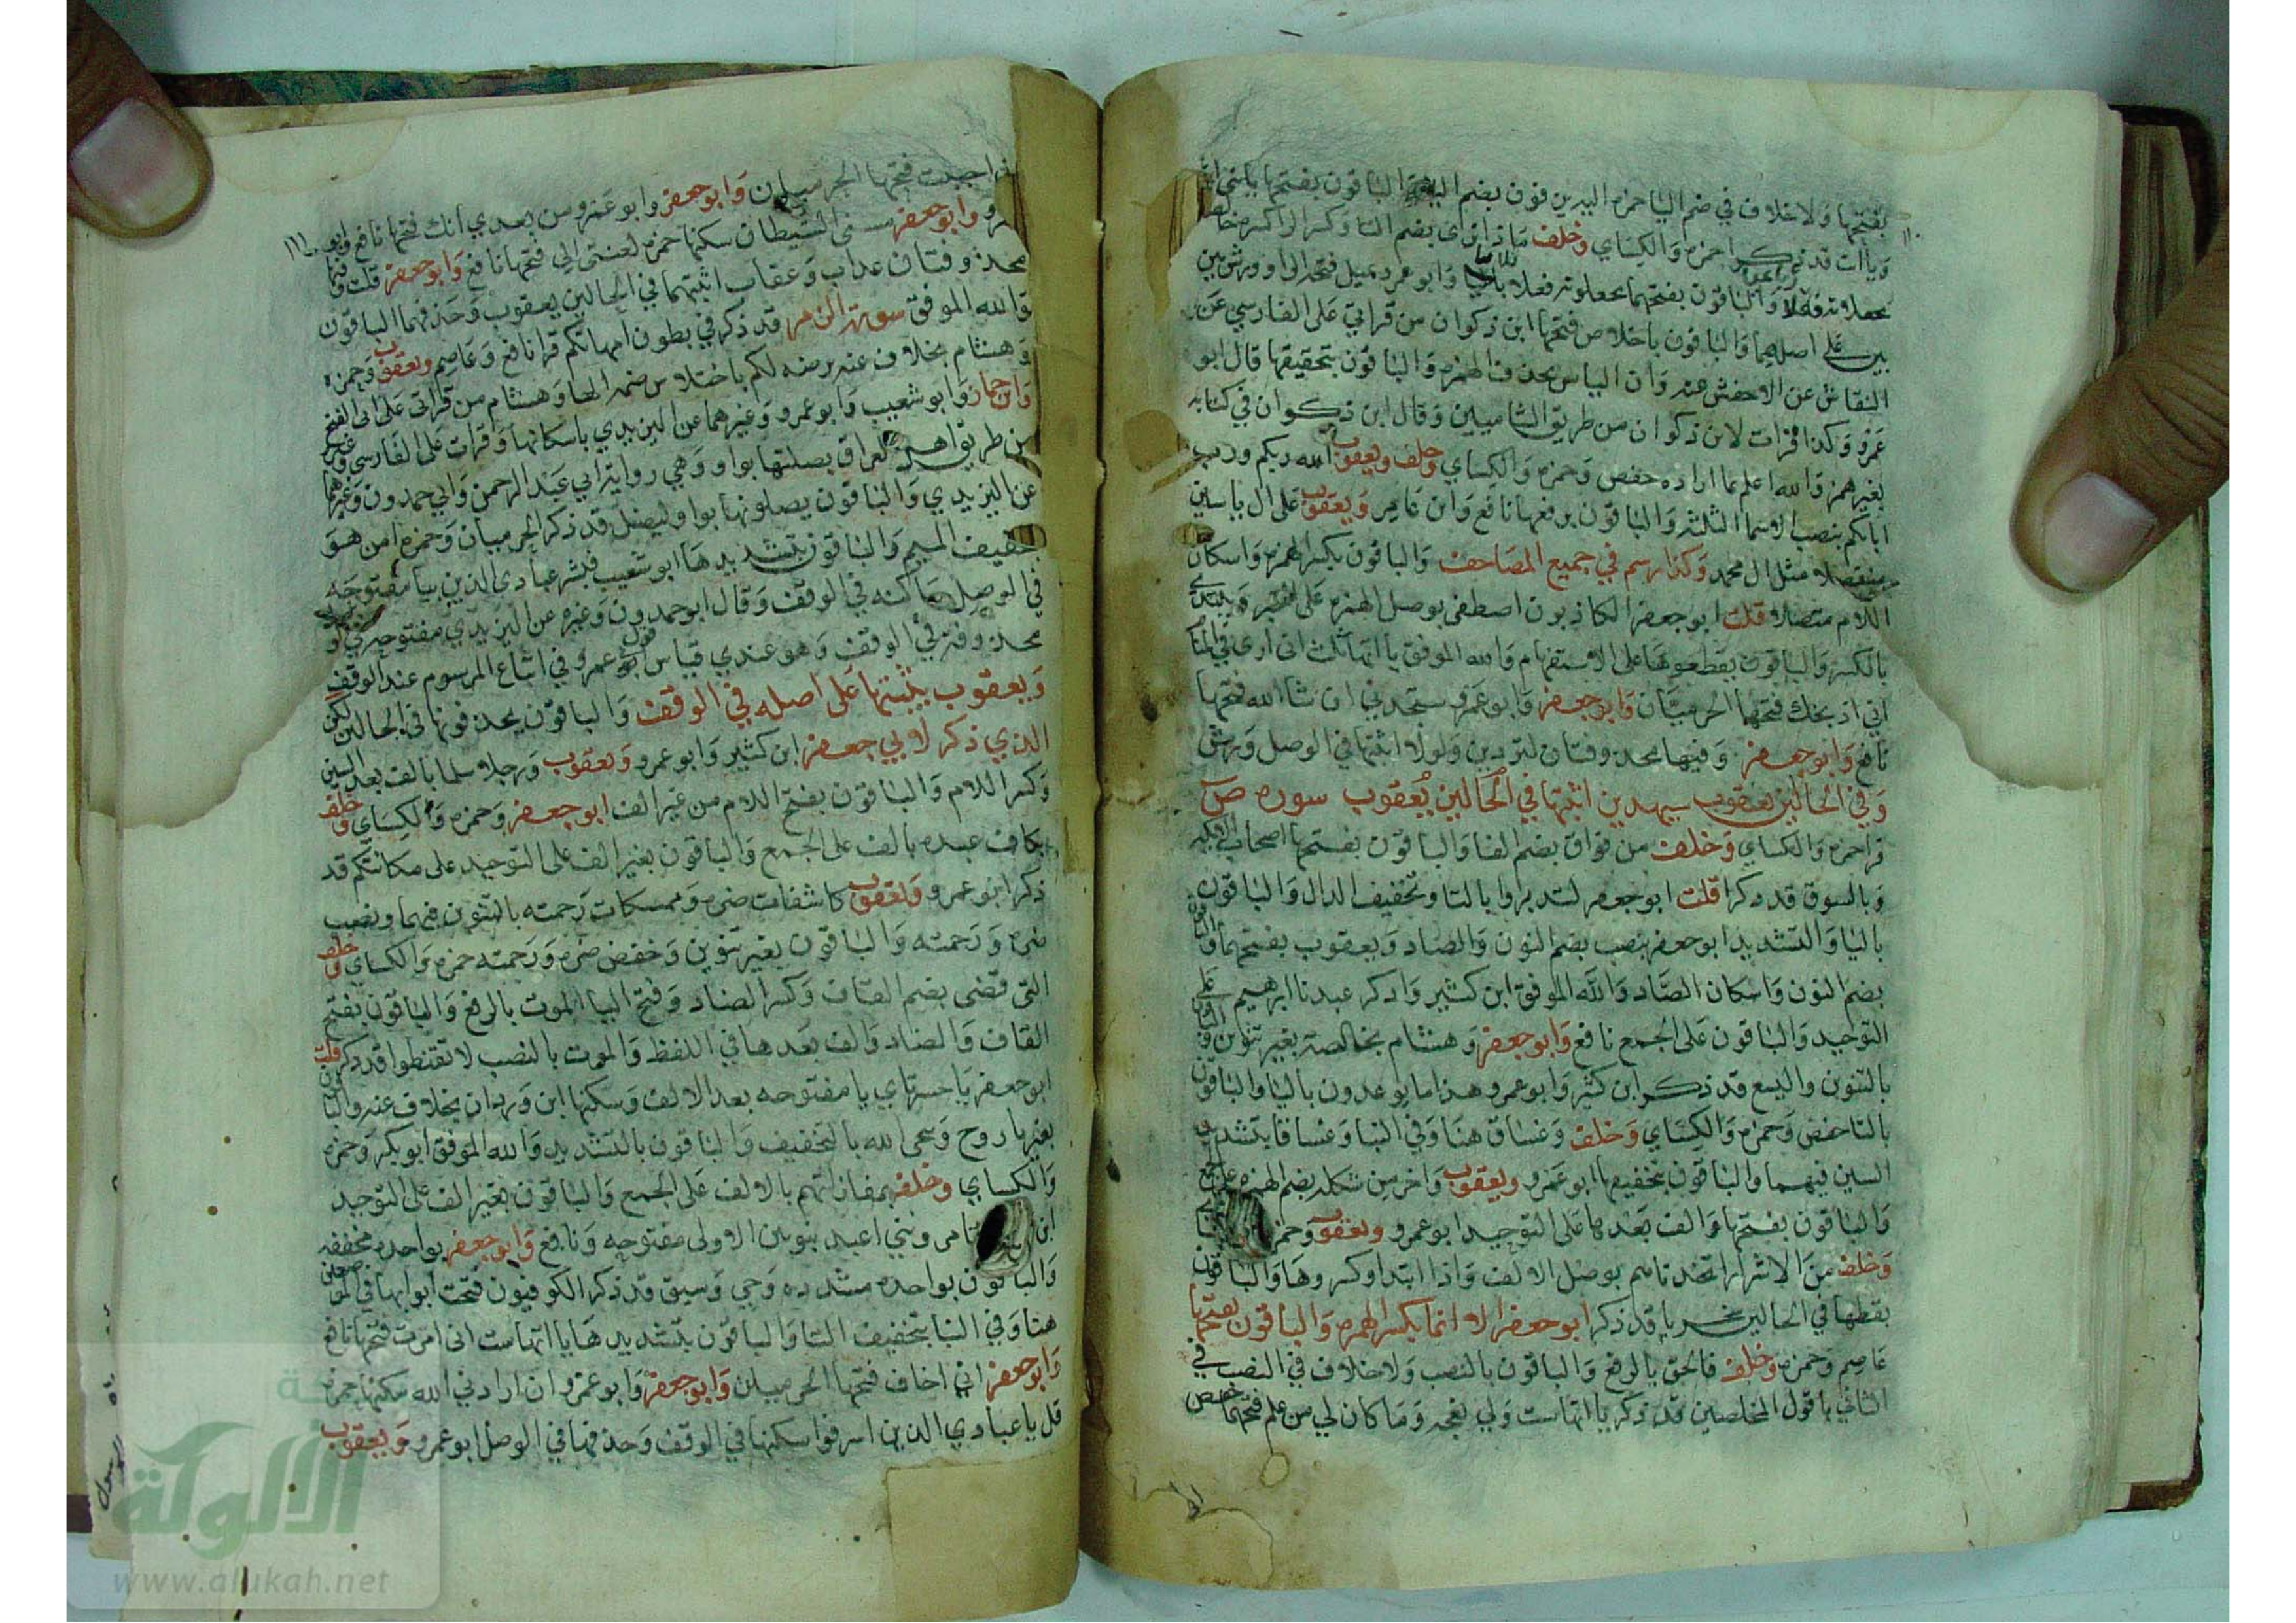 بفتحها ولا خلاف في ضم اليا حمزه اليه يزفون بضم اليا والباقون بفتحها يا بني اني
ويا ابت قد ذكرا حمزه والكساي وخلف ماذا ترى بضم التا وكسر الرا كسره خالصه
يجعلانه فعلا والباقون بفتحهما يجعلونه فعلا ثلاثيا وابو عمرو يميل فتحه الرا وورش بين
بين على اصلهما والباقون باخلاص فتحها ابن ذكوان من قراتي على الفارسي عن
النقاش عن الاخفش عنه وان الياس بحذف الهمزه والباقون بتحقيقها قال ابو
عمرو وكذا قرات لابن ذكوان من طريق الشاميين وقال ابن ذكوان في كتابه
بغير همز والله اعلم بما اراده حفص وحمزه والكساي وخلف ويعقوب الله ربكم ورب
ابائكم بنصب الاسما الثلثه والباقون برفعها نافع وابن عامر ويعقوب على ال ياسين
منفصلا مثل ال محمد وكذا رسم في جميع المصاحف والباقون بكسر الهمزه واسكان
اللام متصلا قلت ابو جعفر لكاذبون اصطفى بوصل الهمزه على الخبر ويبتدي
بالكسر والباقون بقطعها على الاستفهام والله الموفق ياأتها ثلث اني ارى في المنا
اني اذبحك فتحهما الحرميان وابو جعفر وابو عمرو ستجدني ان شا الله فتحها
نافع وابو جعفر وفيها محذوفتان لتردين ولولا اثبتها في الوصل ورش
وفي الحالين يعقوب سيهدين اثبتها في الحالين يعقوب سوره ص
قرا حمزه والكساي وخلف من فواق بضم الفا والباقون بفتحها اصحاب الايكه
وبالسوق قد ذكرا قلت ابو جعفر لتدبروا بالتا وتخفيف الدال والباقون
باليا والتشديد ابو جعفر بنصب بضم النون والصاد ويعقوب بفتحهما والباقون
بضم النون واسكان الصاد والله الموفق ابن كثير واذكر عبدنا ابرهيم على
التوحيد والباقون على الجمع نافع وابو جعفر وهشام بخالصة بغير تنوين والباقون
بالتنوين واليسع قد ذكر ابن كثير وابو عمرو هذا ما يوعدون باليا والباقون
بالتا حفص وحمزه والكساي وخلف وغساق هنا وفي النبا وغساقا بتشديد
السين فيهما والباقون بتخفيفها ابو عمرو ويعقوب واخر من شكله بضم الهمزه على الجمع
والباقون بفتحها والف بعدها على التوحيد ابو عمرو ويعقوب وحمزه
وخلف من الاشرار اتخذناهم بوصل الالف واذا ابتداوا كسروها والباقون
بقطعها في الحالين سخريا قد ذكر ابو جعفر الا انما بكسر الهمزه والباقون بفتحها
عاصم وحمزه وخلف فالحق بالرفع والباقون بالنصب ولا خلاف في النصب في
الثاني يا قول المخلصين قد ذكر ياأتها ست ولي نعجه وما كان لي من علم فتحهما حفص
اني احببت فتحها الحرميان وابو جعفر وابو عمرو من بعدي انك فتحها نافع وابو
عمرو وابو جعفر مسني الشيطان سكنها حمزه لعنتي الى فتحها نافع وابو جعفر قلت وفيها
محذوفتان عذاب وعقاب اثبتهما في الحالين يعقوب وحذفهما الباقون
والله الموفق سورة الزمر قد ذكر في بطون امهاتكم قرا نافع وعاصم ويعقوب وحمزه
وهشام بخلاف عنه يرضه لكم باختلاس ضمه الها وهشام من قراتي على ابي الفتح
وابن جماز وابو شعيب وابو عمرو وغيرهما عن اليزيدي باسكانها واقرات على الفارسي وغيره
من طريق اهل العراق بصلتها بواو وهي رواية ابي عبد الرحمن وابي حمدون وغيرهما
عن اليزيدي والباقون يصلونها بواو ليضل قد ذكر الحرميان وحمزه امن هو
بتخفيف الميم والباقون بتشديدها ابو شعيب فبشر عبادي الذين بيا مفتوحه
في الوصل ساكنه في الوقف وقال ابو حمدون وغيره عن اليزيدي مفتوحه في الوصل
محذوفه في الوقف وهو عندي قياس قول ابي عمرو في اتباع المرسوم عند الوقف
ويعقوب يثبتها على اصله في الوقف والباقون يحذفونها في الحالين لكن
الذي ذكر لابي جعفر ابن كثير وابو عمرو ويعقوب ورجلا سالما بالف بعد السين
وكسر اللام والباقون بفتح اللام من غير الف ابو جعفر وحمزه والكساي وخلف
بكاف عبده بالف على الجمع والباقون بغير الف على التوحيد على مكانتكم قد
ذكر ابو عمرو ويعقوب كاشفات ضره وممسكات رحمته بالتنوين فيهما ونصب
ضره ورحمته والباقون بغير تنوين وخفض ضره ورحمته حمزه والكساي وخلف
التي قضى بضم القاف وكسر الضاد وفتح اليا الموت بالرفع والباقون بفتح
القاف والضاد والف بعدها في اللفظ والموت بالنصب لا تقنطوا قد ذكر قلت
ابو جعفر يا حسرتاي بيا مفتوحه بعد الالف وسكنها ابن وردان بخلاف عنه والباقون
بغير يا روح وينجي الله بالتخفيف والباقون بالتشديد والله الموفق ابو بكر وحمزه
والكساي وخلف بمفازاتهم بالالف على الجمع والباقون بغير الف على التوحيد
ابن عامر تامرونني اعبد بنونين الاولى مفتوحه ونافع وابو جعفر بواحده مخففه
والباقون بواحده مشدده وجي وسيق قد ذكر الكوفيون فتحت ابوابها في الموضعين
هنا وفي النبا بتخفيف التا والباقون بتشديدها ياأتها ست اني امرت فتحها نافع
وابو جعفر اني اخاف فتحها الحرميان وابو جعفر وابو عمرو ان ارادني الله سكنها حمزه
قل يا عبادي الذين اسرفوا سكنها في الوقف وحذفها في الوصل ابو عمرو ويعقوب
الألوكة
www.alukah.net